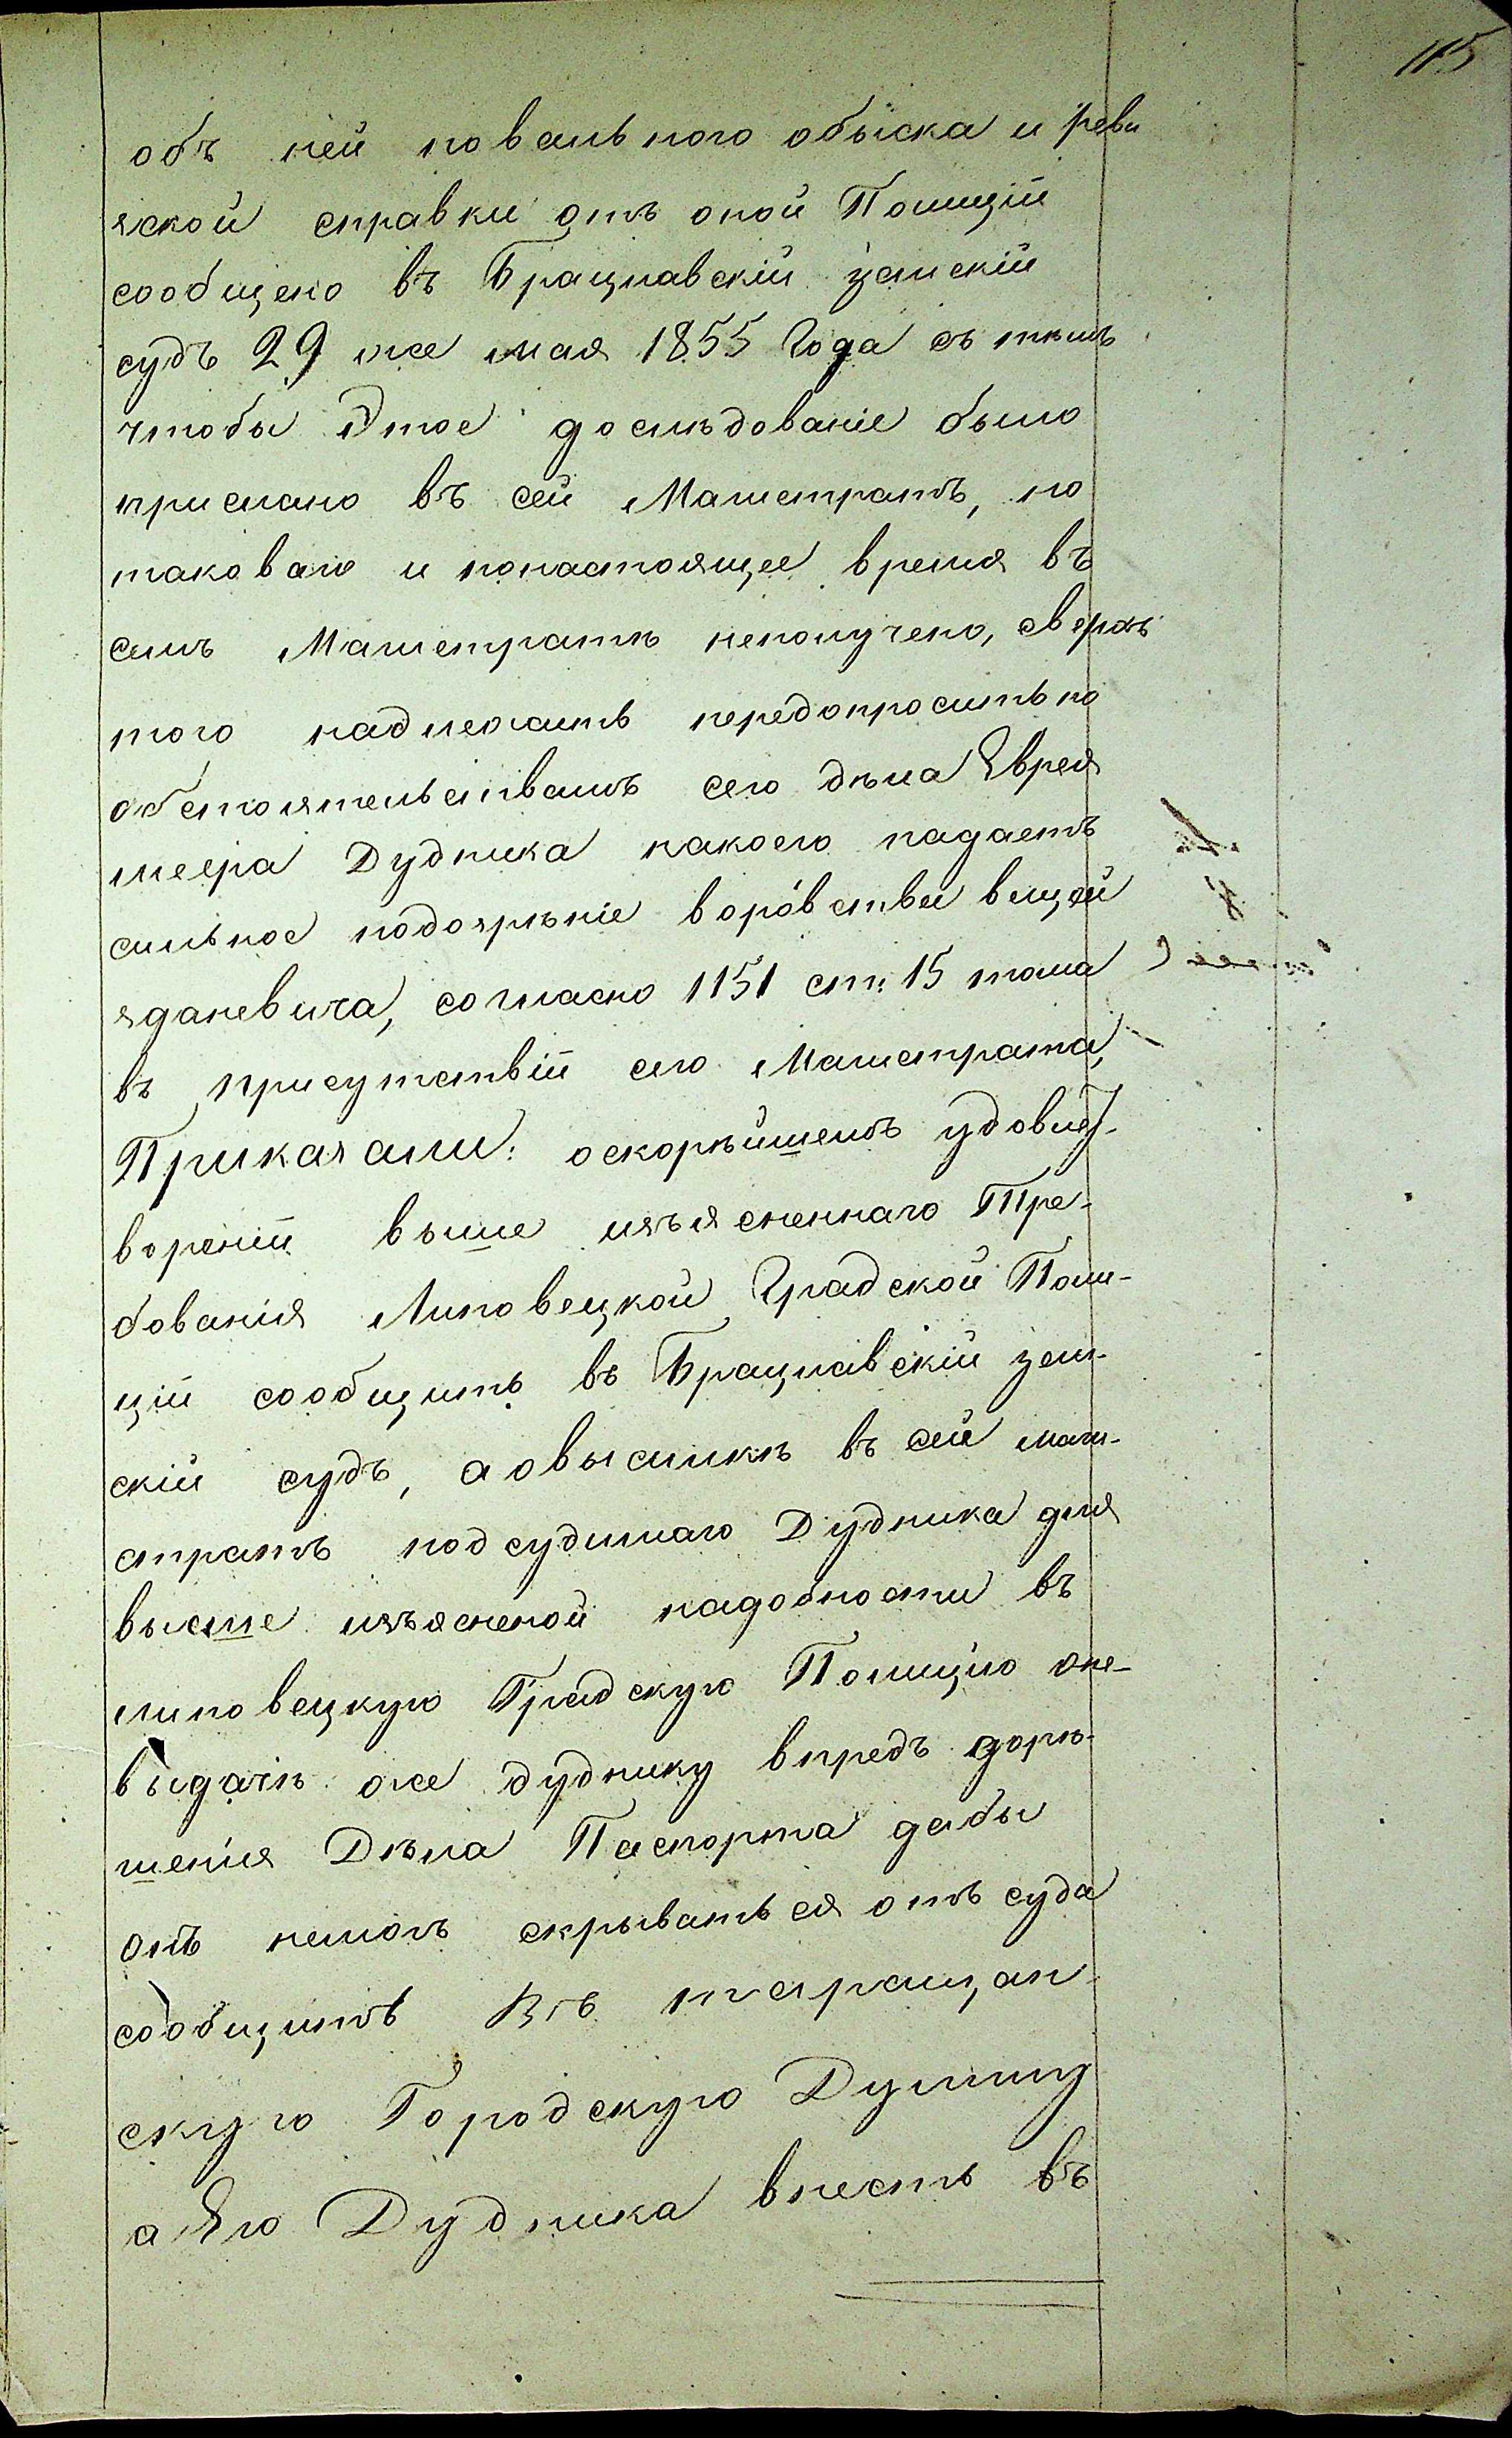 115
объ ней повальнаго обыска и реви
зской справки отъ оной Полиціи
сообщено въ Брацлавскій земскій
судъ 29 же мая 1855 Года съ тѣмъ
чтобы Этое дослѣдованіе было
прислано въ сей Магистратъ, но
таковаго и понастоящее время въ
семъ Магистратѣ неполучено, сверхъ
того надлежитъ передопроситьпо
обстоятельствамъ сего дѣла Еврея
меера Дудника накоего падаетъ
сильное подозрѣніе воровствѣ вещей
яданевича, согласно 1151 ст: 15 тома
въ присутствіи сего Магистрата,
Приказали: оскорѣйшемъ удовлет-
вореніи выше изъясненнаго Тре-
бованія Липовецкой Градской Поли-
ціи сообщить въ Брацлавскій зем-
скій судъ, а овысылкѣ въ сей маги-
стратъ подсудимаго Дудника для
высше изъясненой надобности въ
липовецкую Градскую Полицію оне-
выдачѣ же дуднику впредъ дорѣ-
шенія Дѣла Паспорта дабы
онъ немогъ скрыватьсяя отъ суда
сообщить Въ таращан-
скую Городскую Думу
а Его Дудника внесть въ